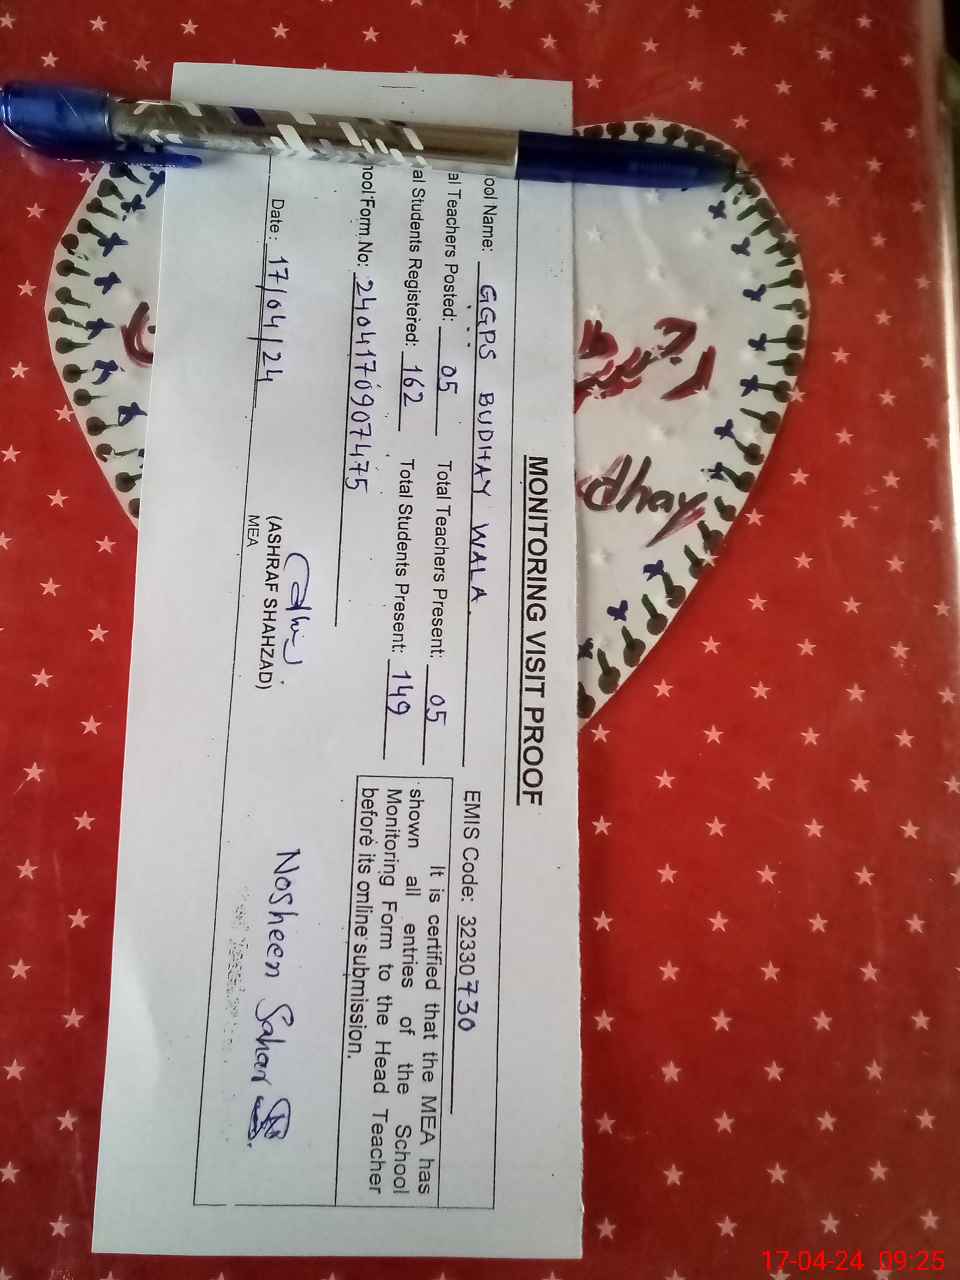 MONITORING VISIT PROOF
ool Name: GGPS BUDHAY WALA EMIS Code: 32330730
al Teachers Posted: 05 Total Teachers Present: 05
al Students Registered: 162 Total Students Present: 149
It is certified that the MEA has
shown all entries of the School
Monitoring Form to the Head Teacher
before its online submission.
hool Form No: 2404170907475
Date: 17/04/24
(ASHRAF SHAHZAD)
MEA
Nosheen Sahar
dhay
17-04-24 09:25